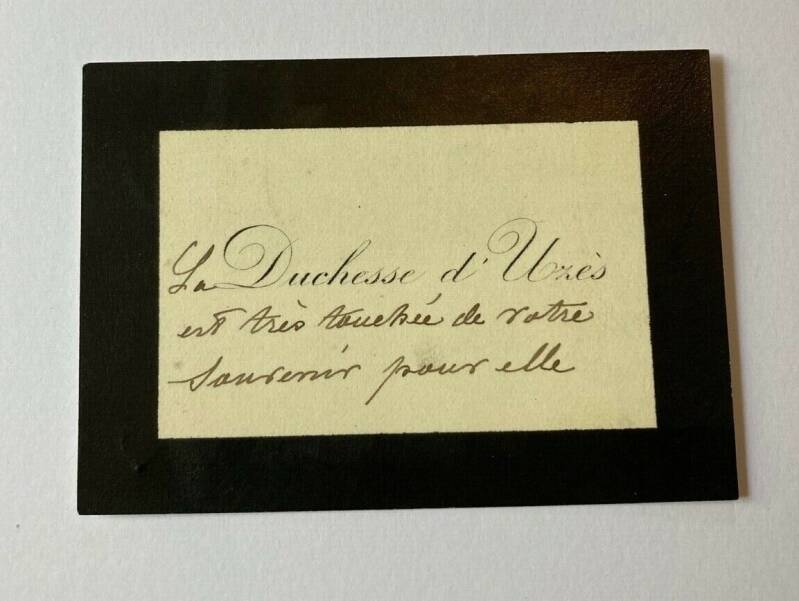 La Duchesse d'Uzès
est très touchée de votre
souvenir pour elle